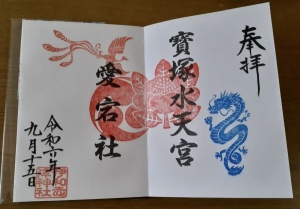 奉拝
寶塚水天宮
愛宕社
令和六年
九月十五日